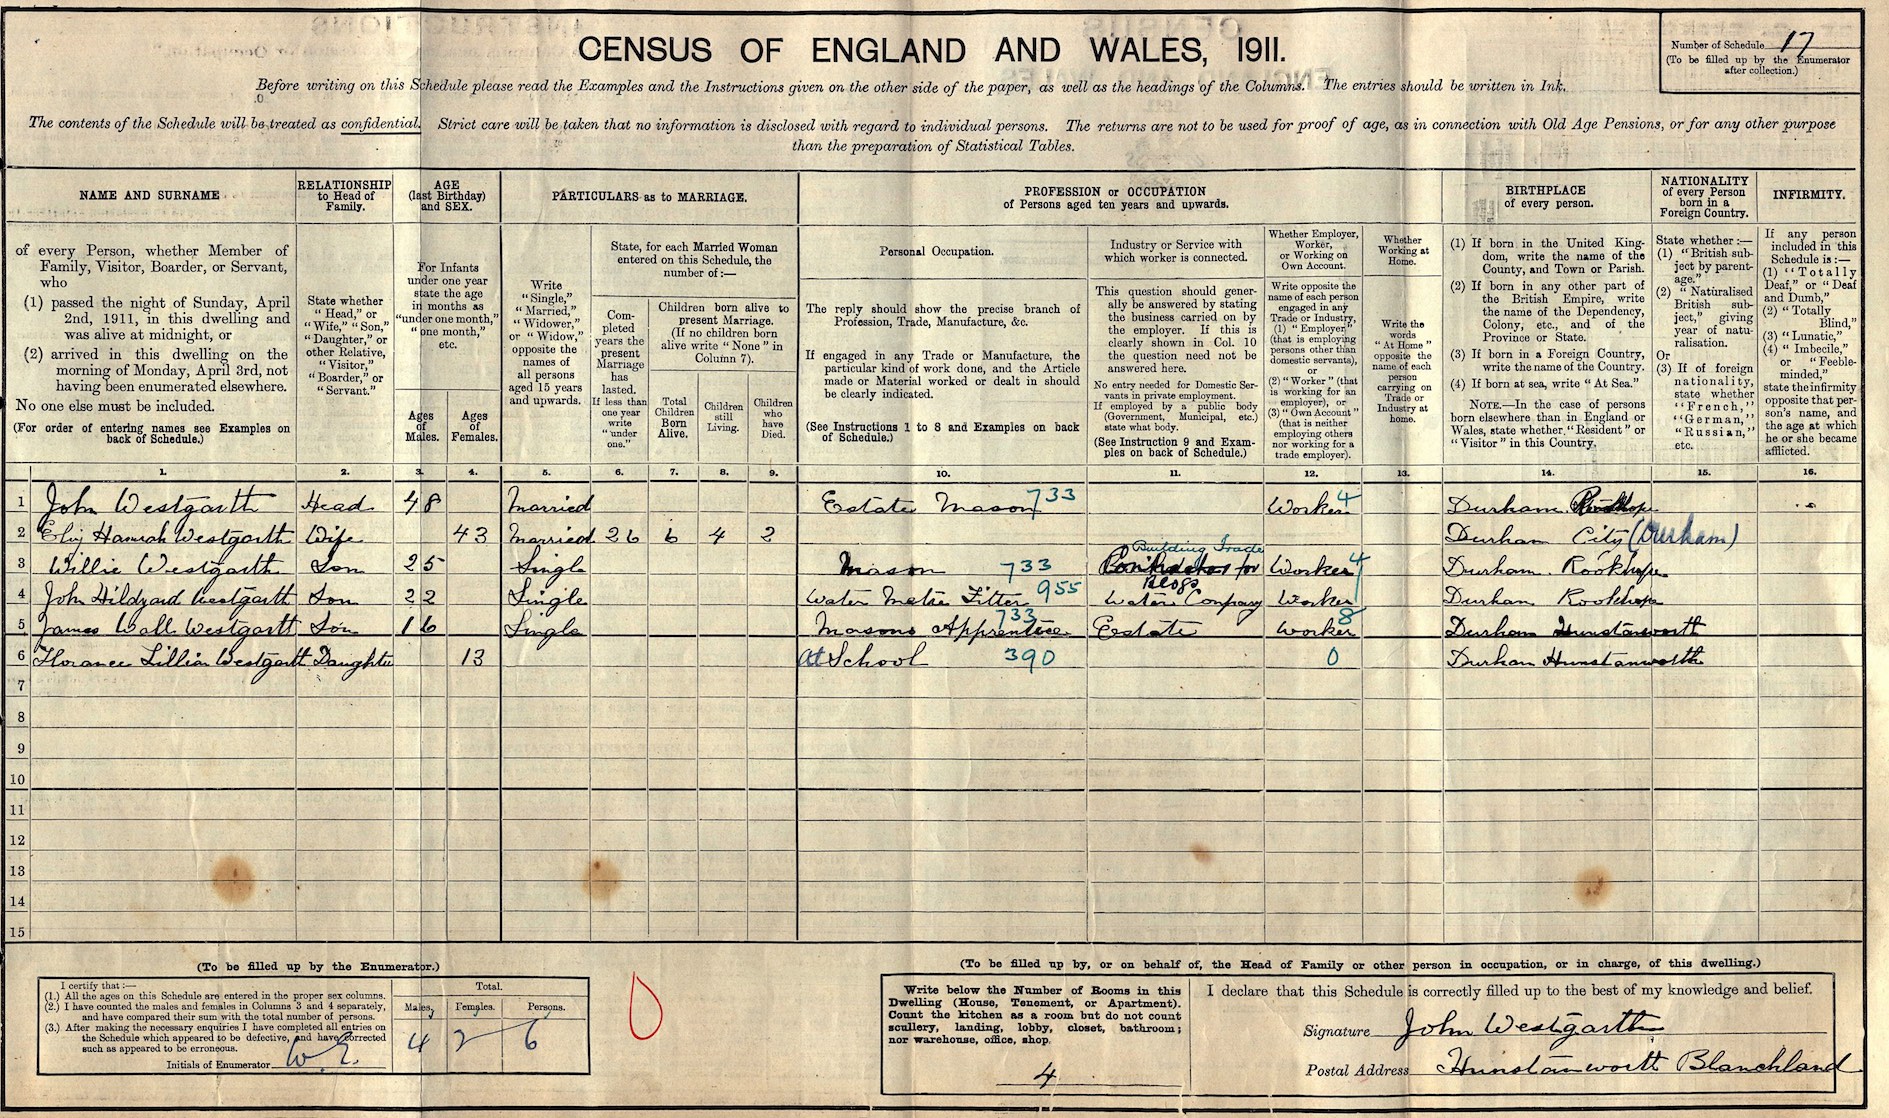 CENSUS OF ENGLAND AND WALES, 1911.
Number of Schedule 17
(To be filled up by the Enumerator
after collection.)
Before writing on this Schedule please read the Examples and the Instructions given on the other side of the paper, as well as the headings of the Columns. The entries should be written in Ink.
The contents of the Schedule will be treated as confidential. Strict care will be taken that no information is disclosed with regard to individual persons. The returns are not to be used for proof of age, as in connection with Old Age Pensions, or for any other purpose
than the preparation of Statistical Tables.
NAME AND SURNAME
of every Person, whether Member of
Family, Visitor, Boarder, or Servant,
who
(1) passed the night of Sunday, April
2nd, 1911, in this dwelling and
was alive at midnight, or
(2) arrived in this dwelling on the
morning of Monday, April 3rd, not
having been enumerated elsewhere.
No one else must be included.
(For order of entering names see Examples on
back of Schedule.)
RELATIONSHIP
to Head of
Family.
State whether
"Head," or
"Wife," "Son,"
"Daughter," or
other Relative,
"Visitor,"
"Boarder," or
"Servant."
AGE
(last Birthday)
and SEX.
For Infants
under one year
state the age
in months as
"under one month,"
"one month,"
etc.
Ages
of
Males.
Ages
of
Females.
PARTICULARS as to MARRIAGE.
Write
"Single,"
"Married,"
"Widower,"
or "Widow,"
opposite the
names of
all persons
aged 15 years
and upwards.
State, for each Married Woman
entered on this Schedule, the
number of:—
Com-
pleted
years the
present
Marriage
has
lasted.
If less than
one year
write
"under
one."
Children born alive to
present Marriage.
(If no children born
alive write "None" in
Column 7).
Total
Children
Born
Alive.
Children
still
Living.
Children
who
have
Died.
PROFESSION or OCCUPATION
of Persons aged ten years and upwards.
Personal Occupation.
The reply should show the precise branch of
Profession, Trade, Manufacture, &c.
If engaged in any Trade or Manufacture, the
particular kind of work done, and the Article
made or Material worked or dealt in should
be clearly indicated.
(See Instructions 1 to 8 and Examples on back
of Schedule.)
Industry or Service with
which worker is connected.
This question should gener-
ally be answered by stating
the business carried on by
the employer. If this is
clearly shown in Col. 10
the question need not be
answered here.
No entry needed for Domestic Ser-
vants in private employment.
If employed by a public body
(Government, Municipal, etc.)
state what body.
(See Instruction 9 and Exam-
ples on back of Schedule.)
Whether Employer,
Worker,
or Working on
Own Account.
Write opposite the
name of each person
engaged in any
Trade or Industry,
(1) "Employer"
(that is employing
persons other than
domestic servants),
or
(2) "Worker" (that
is working for an
employer), or
(3) "Own Account"
(that is neither
employing others
nor working for a
trade employer).
Whether
Working at
Home.
Write the
words
"At Home"
opposite the
name of each
person
carrying on
Trade or
Industry at
home.
BIRTHPLACE
of every person.
(1) If born in the United King-
dom, write the name of the
County, and Town or Parish.
(2) If born in any other part of
the British Empire, write
the name of the Dependency,
Colony, etc., and of the
Province or State.
(3) If born in a Foreign Country,
write the name of the Country.
(4) If born at sea, write "At Sea."
NOTE.—In the case of persons
born elsewhere than in England or
Wales, state whether "Resident" or
"Visitor" in this Country.
NATIONALITY
of every Person
born in a
Foreign Country.
State whether:—
(1) "British sub-
ject by parent-
age."
(2) "Naturalised
British sub-
ject," giving
year of natu-
ralisation.
Or
(3) If of foreign
nationality,
state whether
"French,"
"German,"
"Russian,"
etc.
INFIRMITY.
If any person
included in this
Schedule is:—
(1) "Totally
Deaf," or "Deaf
and Dumb,"
(2) "Totally
Blind,"
(3) "Lunatic,"
(4) "Imbecile,"
or "Feeble-
minded,"
state the infirmity
opposite that per-
son's name, and
the age at which
he or she became
afflicted.
1. 2. 3. 4. 5. 6. 7. 8. 9. 10. 11. 12. 13. 14. 15. 16.
1 John Westgarth Head 48 Married Estate Mason 733 Worker 4 Durham Rookhope
2 Eliz Hannah Westgarth Wife 43 Married 26 6 4 2 Durham City (Durham)
Building Trade
3 Willie Westgarth Son 25 Single Mason 733 Contractor for Worker 4 Durham. Rookhope
Bldgs
4 John Hildyard Westgarth Son 22 Single Water Metre Fitter 955 Water Company Worker Durham Rookhope
5 James Wall Westgarth Son 16 Single Masons Apprentice 733 Estate Worker 8 Durham Hunstanworth
6 Florance Lillian Westgarth Daughter 13 At School 390 0 Durham Hunstanworth
7
8
9
10
11
12
13
14
15
(To be filled up by the Enumerator.)
I certify that:—
(1.) All the ages on this Schedule are entered in the proper sex columns.
(2.) I have counted the males and females in Columns 3 and 4 separately,
and have compared their sum with the total number of persons.
(3.) After making the necessary enquiries I have completed all entries on
the Schedule which appeared to be defective, and have corrected
such as appeared to be erroneous.
Initials of Enumerator W.E.
Total.
Males. Females. Persons.
4 2 6
(To be filled up by, or on behalf of, the Head of Family or other person in occupation, or in charge, of this dwelling.)
Write below the Number of Rooms in this
Dwelling (House, Tenement, or Apartment).
Count the kitchen as a room but do not count
scullery, landing, lobby, closet, bathroom;
nor warehouse, office, shop.
4
I declare that this Schedule is correctly filled up to the best of my knowledge and belief.
Signature John Westgarth
Postal Address Hunstanworth Blanchland